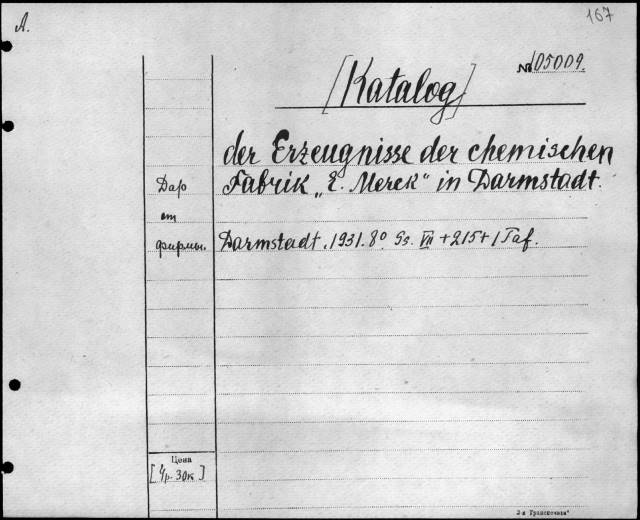 A.
167
[Katalog]
№ 105009.
der Erzeugnisse der chemischen
Fabrik „E. Merck" in Darmstadt.
Дар
от
фирмы.
Darmstadt. 1931. 8° Ss. VII + 215 + 1 Taf.
Цена
[4р. 30к]